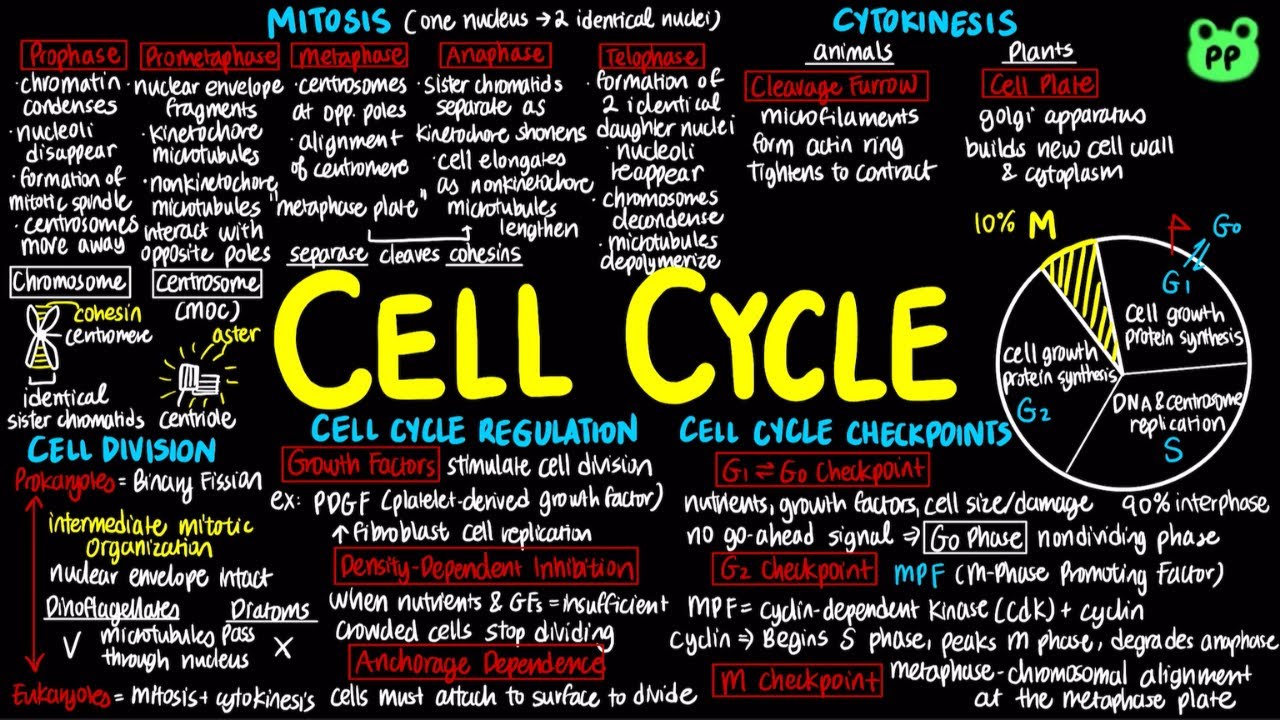 MITOSIS (one nucleus → 2 identical nuclei)
Prophase
· chromatin
condenses
· nucleoli
disappear
· formation of
mitotic spindle
· centrosomes
move away
Prometaphase
· nuclear envelope
fragments
· kinetochore
microtubules
· nonkinetochore
microtubules
interact with
opposite poles
metaphase
· centrosomes
at opp. poles
· alignment
of centromere
"metaphase plate"
Anaphase
· Sister chromatids
separate as
kinetochore shortens
· cell elongates
as nonkinetochore
microtubules
lengthen
separase cleaves cohesins
Telophase
· formation of
2 identical
daughter nuclei
· nucleoli
reappear
· chromosomes
decondense
· microtubules
depolymerize
CYTOKINESIS
animals
Cleavage Furrow
microfilaments
form actin ring
Tightens to contract
Plants
Cell Plate
golgi apparatus
builds new cell wall
& cytoplasm
PP
Chromosome
cohesin
centromere
identical
sister chromatids
centrosome
(MOC)
aster
centriole
CELL CYCLE
10% M
G0
G1
cell growth
protein synthesis
DNA & centrosome
replication
S
cell growth
protein synthesis
G2
90% interphase
CELL DIVISION
Prokaryotes = Binary Fission
intermediate mitotic
organization
nuclear envelope intact
Dinoflagellates Diatoms
V microtubules pass X
through nucleus
Eukaryotes = mitosis + cytokinesis
CELL CYCLE REGULATION
Growth Factors stimulate cell division
ex: PDGF (platelet-derived growth factor)
↑ fibroblast cell replication
Density-Dependent Inhibition
when nutrients & GFs = insufficient
crowded cells stop dividing
Anchorage Dependence
cells must attach to surface to divide
CELL CYCLE CHECKPOINTS
G1 ⇌ G0 Checkpoint
nutrients, growth factors, cell size/damage
no go-ahead signal ⇒ G0 Phase nondividing phase
G2 Checkpoint MPF (M-Phase Promoting Factor)
MPF = cyclin-dependent kinase (Cdk) + cyclin
cyclin ⇒ Begins S phase, peaks M phase, degrades anaphase
M Checkpoint metaphase - chromosomal alignment
at the metaphase plate